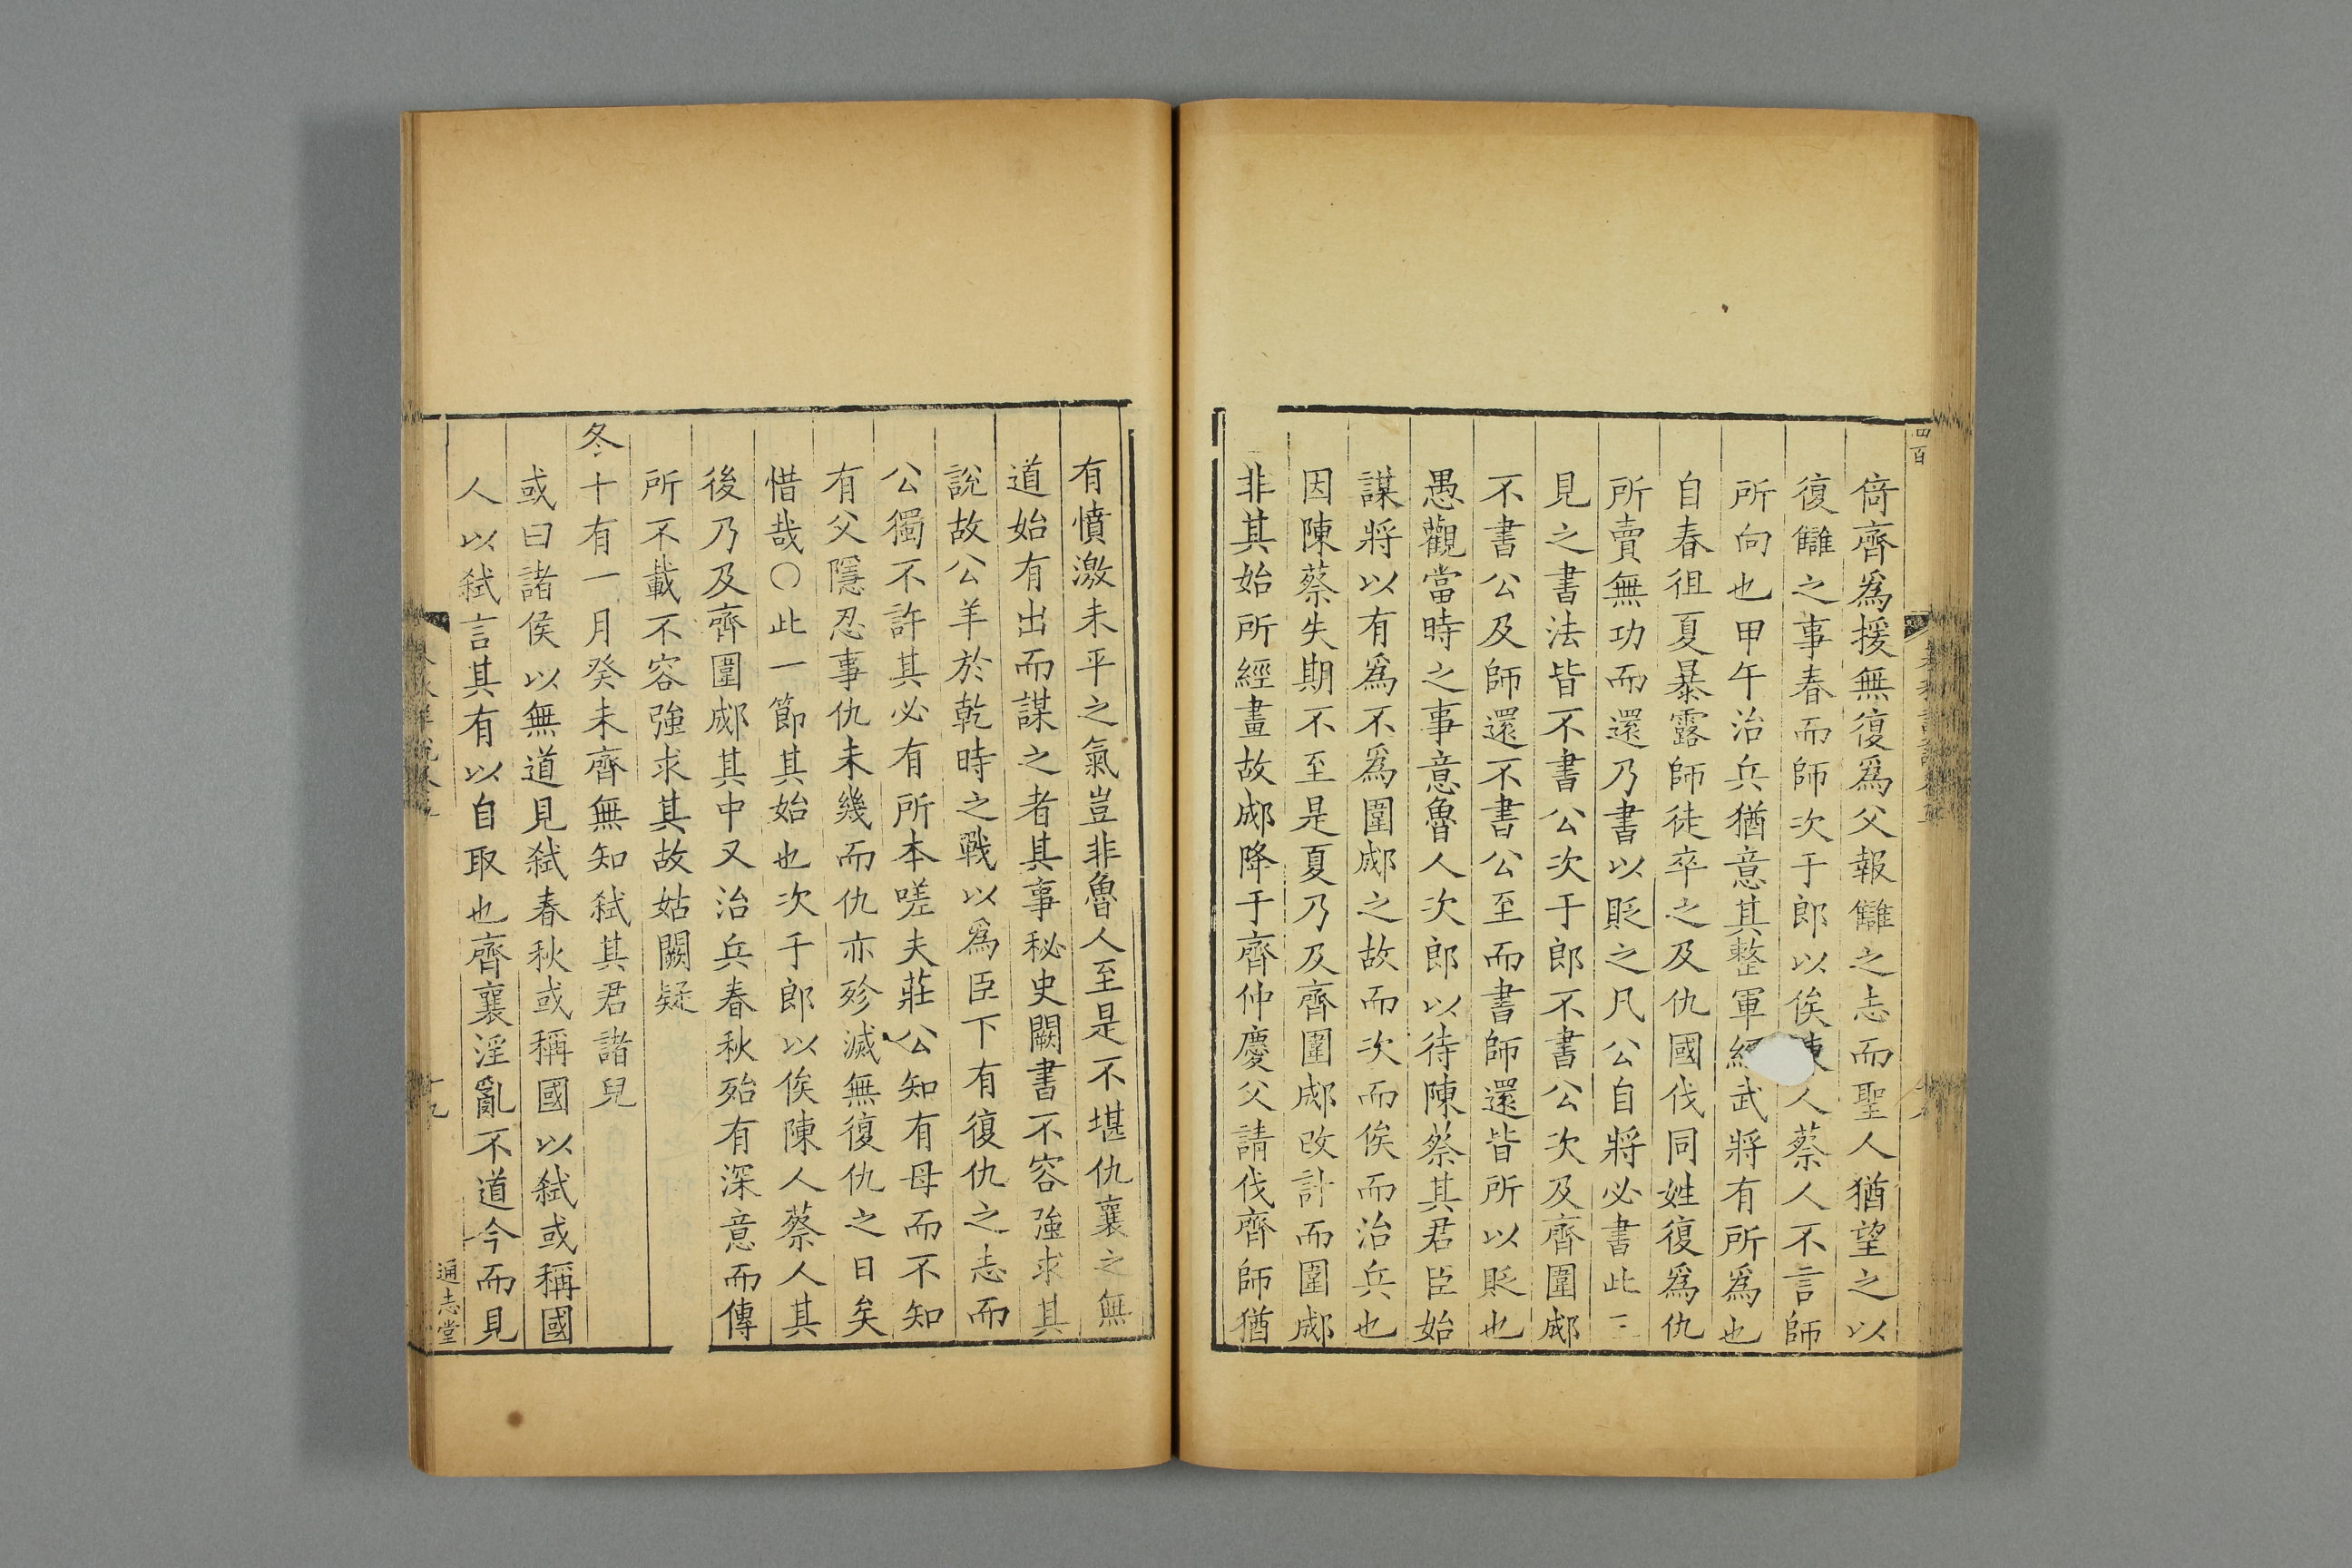 四百
倚齊爲援無復爲父報讎之志而聖人猶望之以
復讎之事春而師次于郎以俟陳人蔡人不言師
所向也甲午治兵猶意其整軍經武將有所爲也
自春徂夏暴露師徒卒之及仇國伐同姓復爲仇
所賣無功而還乃書以貶之凡公自將必書此三
見之書法皆不書公次于郎不書公次及齊圍郕
不書公及師還不書公至而書師還皆所以貶也
愚觀當時之事意魯人次郎以待陳蔡其君臣始
謀將以有爲不爲圍郕之故而次而俟而治兵也
因陳蔡失期不至是夏乃及齊圍郕改計而圍郕
非其始所經畫故郕降于齊仲慶父請伐齊師猶
有憤激未平之氣豈非魯人至是不堪仇襄之無
道始有出而謀之者其事秘史闕書不容強求其
說故公羊於乾時之戰以爲臣下有復仇之志而
公獨不許其必有所本嗟夫莊公知有母而不知
有父隱忍事仇未幾而仇亦殄滅無復仇之日矣
惜哉○此一節其始也次于郎以俟陳人蔡人其
後乃及齊圍郕其中又治兵春秋殆有深意而傳
所不載不容強求其故姑闕疑
冬十有一月癸未齊無知弒其君諸兒
或曰諸侯以無道見弒春秋或稱國以弒或稱國
人以弒言其有以自取也齊襄淫亂不道今而見
十九
通志堂